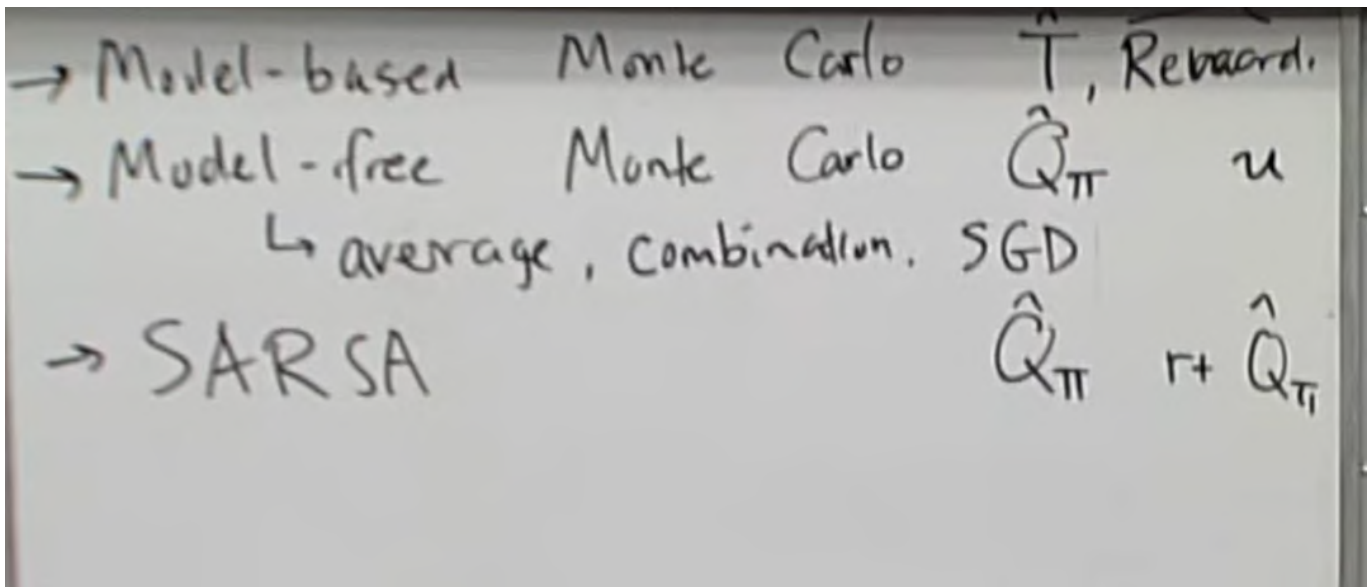 → Model-based Monte Carlo T̂, Reward.
→ Model-free Monte Carlo Q̂π u
↳ average, combination, SGD
→ SARSA Q̂π r+ Q̂π